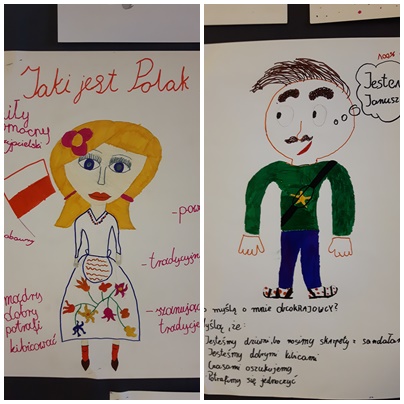 Jaki jest Polak
miły
pomocny
zabawny
mądry
dobry
potrafi
kibicować
- tradycyjn
- szanując
tradycje
Jestem
Janusz
o myślą o mnie obcokrajowcy?
yślą, że:
Jesteśmy dziwni bo nosimy skarpety i sandała
Jesteśmy dobrymi kibicami
Czasami oszukujemy
Potrafimy się jednoczyć